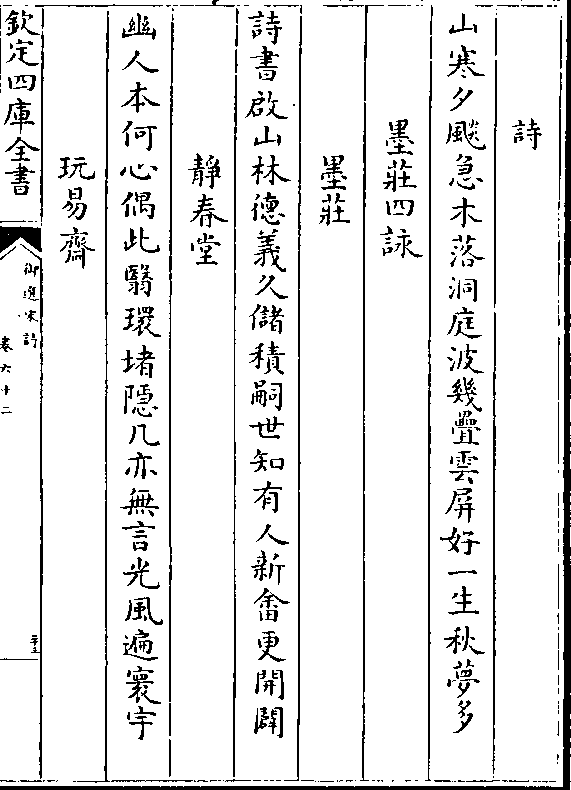 詩
山寒夕飇急木落洞庭波幾疊雲屏好一生秋夢多
墨莊四詠
墨莊
詩書啟山林德義久儲積嗣世知有人新畬更開闢
靜春堂
幽人本何心偶此翳環堵隱几亦無言光風遍寰宇
玩易齋
欽定四庫全書
御選宋詩
卷六十二